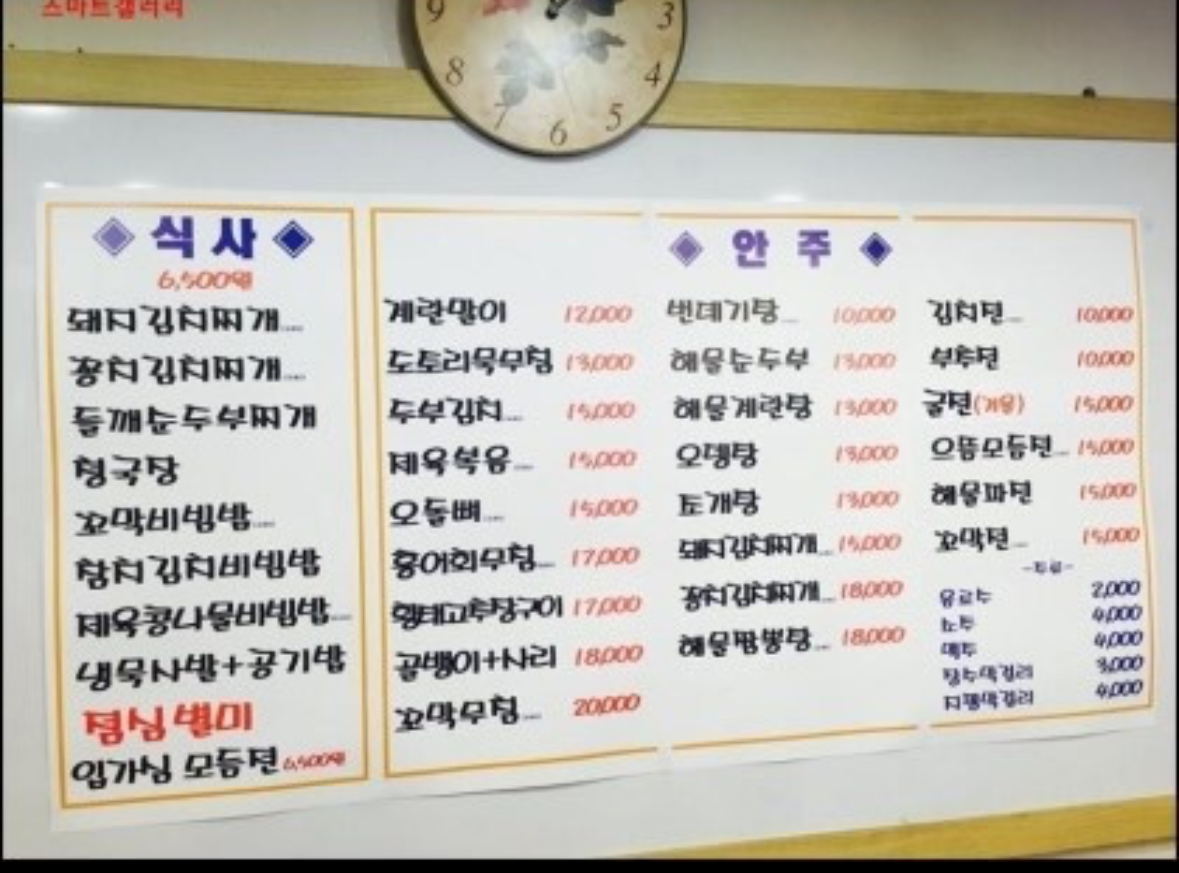 스마트갤러리
9 3
8 4
7 5
6
식사
6,500원
돼지김치찌개....
꽁치김치찌개....
들깨순두부찌개
청국장
꼬막비빔밥....
참치김치비빔밥
제육콩나물비빔밥...
냉묵사발+공기밥
점심별미
입가심 모듬전 6,500원
안주
계란말이 12,000
도토리묵무침 13,000
두부김치... 15,000
제육볶음... 15,000
오돌뼈.... 15,000
홍어회무침... 17,000
황태고추장구이 17,000
골뱅이+사리 18,000
꼬막무침... 20,000
번데기탕... 10,000
해물순두부 13,000
해물계란탕 13,000
오뎅탕 13,000
조개탕 13,000
돼지김치찌개... 15,000
꽁치김치찌개... 18,000
해물짬뽕탕... 18,000
김치전... 10,000
부추전 10,000
굴전(겨울) 15,000
으뜸모듬전... 15,000
해물파전 15,000
꼬막전... 15,000
-주류-
음료수 2,000
소주 4,000
맥주 4,000
장수막걸리 3,000
지평막걸리 4,000